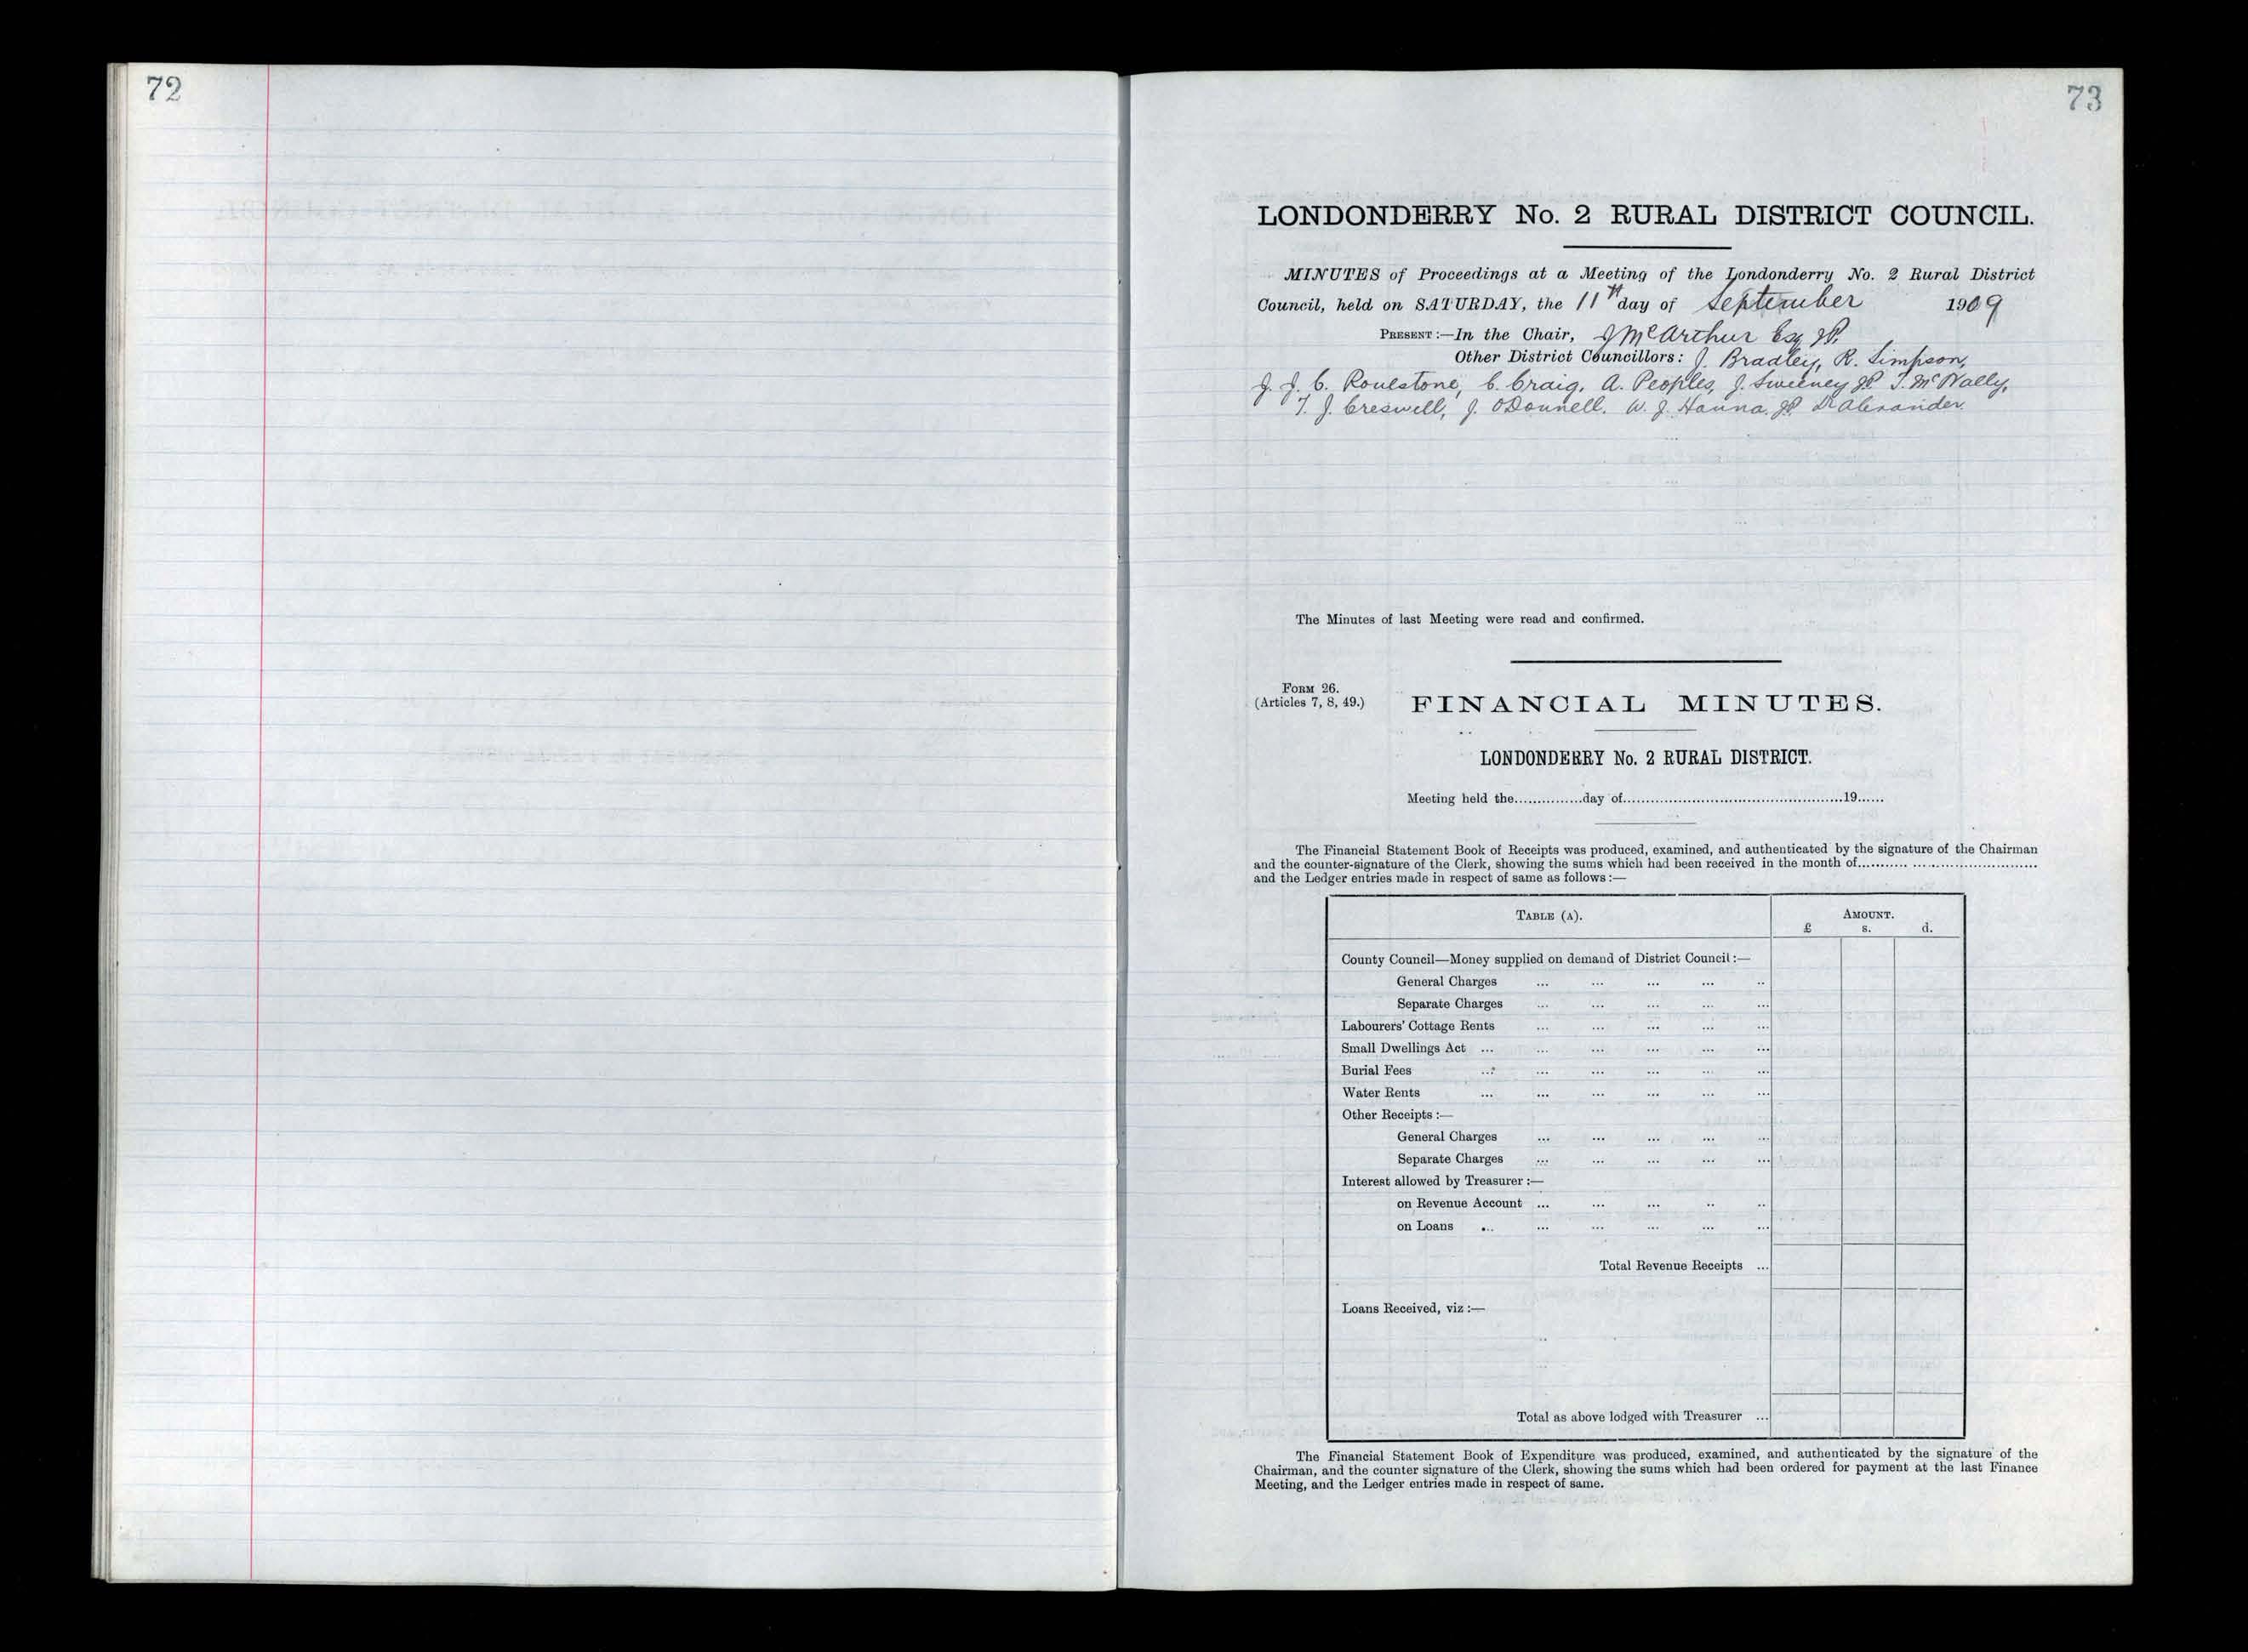 72
73
LONDONDERRY No. 2 RURAL DISTRICT COUNCIL.
MINUTES of Proceedings at a Meeting of the Londonderry No. 2 Rural District
Council, held on SATURDAY, the 11th day of September 1909
PRESENT:—In the Chair, J McArthur Esq JP.
Other District Councillors: J. Bradley, R. Simpson,
J. J. C. Roulestone, C. Craig, A. Peoples, J. Sweeney JP. T. McNally,
T. J. Creswell, J. O'Donnell. W. J. Hanna, JP. D. Alexander.
The Minutes of last Meeting were read and confirmed.
FORM 26.
(Articles 7, 8, 49.)
FINANCIAL MINUTES.
LONDONDERRY No. 2 RURAL DISTRICT.
Meeting held the...............day of................................................19......
The Financial Statement Book of Receipts was produced, examined, and authenticated by the signature of the Chairman
and the counter-signature of the Clerk, showing the sums which had been received in the month of......................................
and the Ledger entries made in respect of same as follows:—
TABLE (A). AMOUNT.
£ s. d.
County Council—Money supplied on demand of District Council:—
General Charges ... ... ... ... ..
Separate Charges ... ... ... ... ...
Labourers' Cottage Rents ... ... ... ... ...
Small Dwellings Act ... ... ... ... ... ...
Burial Fees ... ... ... ... ... ...
Water Rents ... ... ... ... ... ...
Other Receipts:—
General Charges ... ... ... ... ...
Separate Charges ... ... ... ... ...
Interest allowed by Treasurer:—
on Revenue Account ... ... ... .. ..
on Loans ... ... ... ... ... ...
Total Revenue Receipts ...
Loans Received, viz:—
Total as above lodged with Treasurer ...
The Financial Statement Book of Expenditure was produced, examined, and authenticated by the signature of the
Chairman, and the counter signature of the Clerk, showing the sums which had been ordered for payment at the last Finance
Meeting, and the Ledger entries made in respect of same.